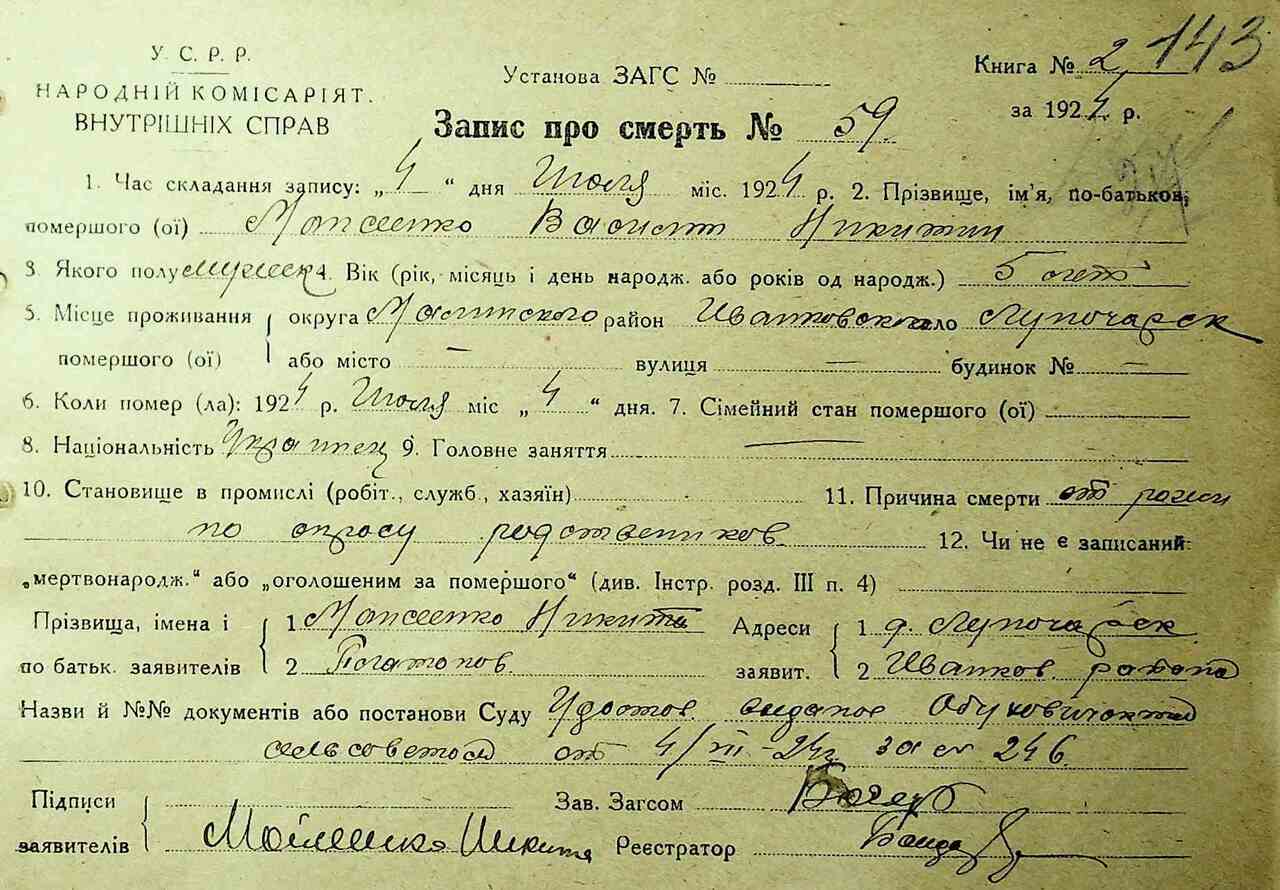 У. С. Р. Р.
НАРОДНІЙ КОМІСАРІЯТ.
ВНУТРІШНІХ СПРАВ
Установа ЗАГС №
Книга № 2 143
за 1924 р.
Запис про смерть № 59
1. Час складання запису: „ 4 “ дня Июля міс. 1924 р. 2. Прізвище, ім'я, по-батьков,
помершого (ої) Василий Никитин
3. Якого полу мужеск 4. Вік (рік, місяць і день народж. або років од народж.) 5 лет
5. Місце проживання округа Малинского район Иванковского село
помершого (ої) або місто — вулиця — будинок № —
6. Коли помер (ла): 1924 р. Июля міс „ 4 “ дня. 7. Сімейний стан помершого (ої)
8. Національність Украинец 9. Головне заняття —
10. Становище в промислі (робіт., служб., хазяїн) 11. Причина смерти от рожи
по опросу родственников 12. Чи не є записаний:
„мертвонародж.“ або „оголошеним за помершого“ (див. Інстр. розд. III п. 4)
Прізвища, імена і 1 Никита Адреси 1 д.
по батьк. заявителів 2 заявит. 2 Иванков. района
Назви й №№ документів або постанови Суду Удостов. выданое Обуховичским
сельсоветом от 4/VII-24г за № 246.
Підписи Зав. Загсом
заявителів Мойсенко Никита Реєстратор